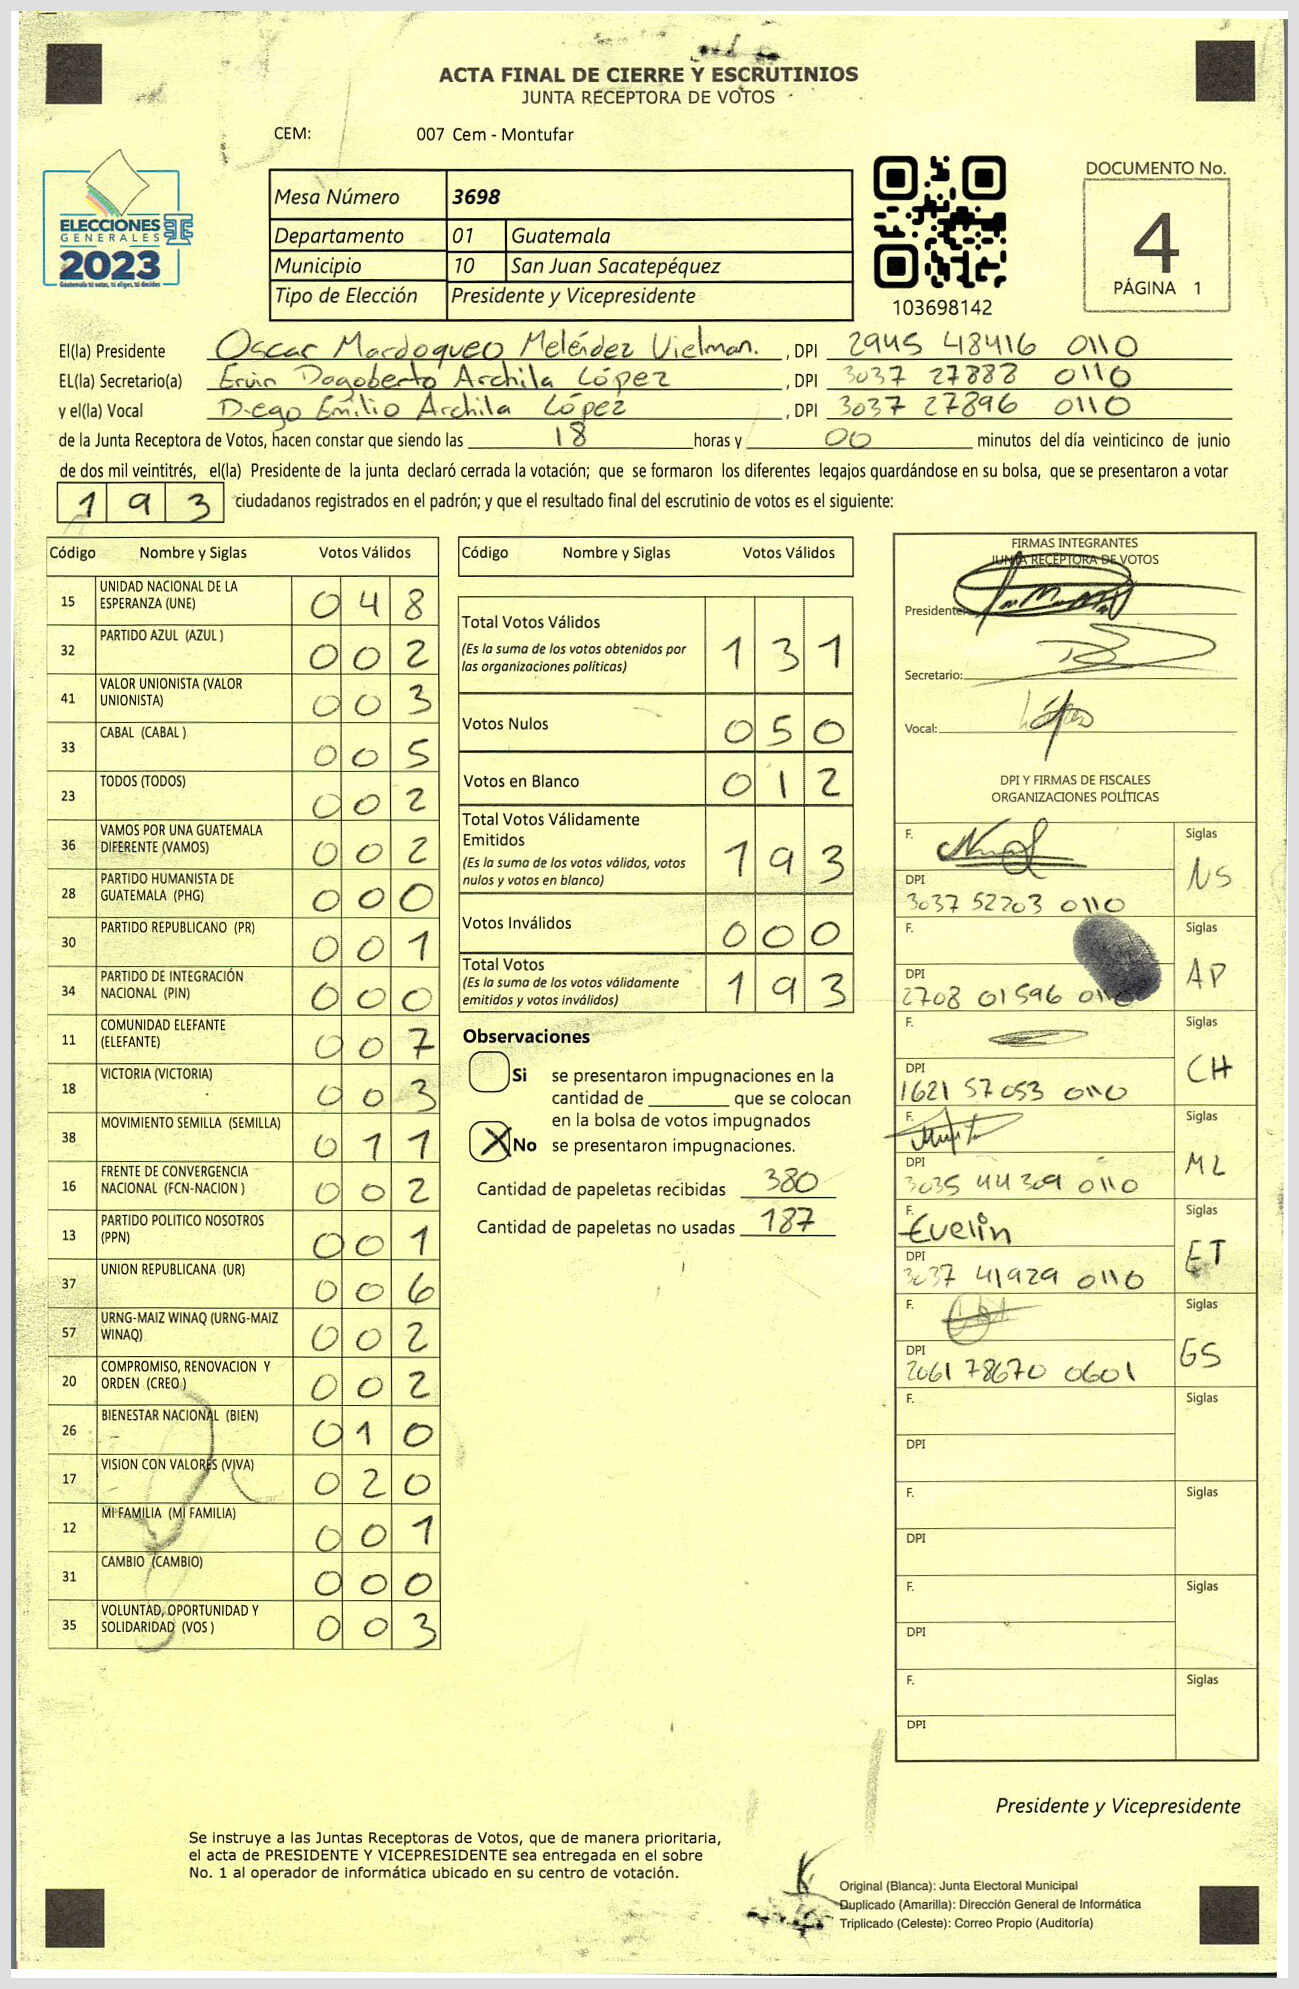 ACTA FINAL DE CIERRE Y ESCRUTINIOS
JUNTA RECEPTORA DE VOTOS
CEM: 007 Cem - Montufar
ELECCIONES
GENERALES
2023
Guatemala tú votas, tú eliges, tú decides
Mesa Número 3698
Departamento 01 Guatemala
Municipio 10 San Juan Sacatepéquez
Tipo de Elección Presidente y Vicepresidente
103698142
DOCUMENTO No.
4
PÁGINA 1
El(la) Presidente Oscar Mardoqueo Meléndez Vielman. , DPI 2945 48416 0110
EL(la) Secretario(a) Ervin Dagoberto Archila López , DPI 3037 27888 0110
y el(la) Vocal Diego Emilio Archila López , DPI 3037 27896 0110
de la Junta Receptora de Votos, hacen constar que siendo las 18 horas y 00 minutos del día veinticinco de junio
de dos mil veintitrés, el(la) Presidente de la junta declaró cerrada la votación; que se formaron los diferentes legajos guardándose en su bolsa, que se presentaron a votar
193 ciudadanos registrados en el padrón; y que el resultado final del escrutinio de votos es el siguiente:
Código Nombre y Siglas Votos Válidos
15 UNIDAD NACIONAL DE LA ESPERANZA (UNE) 048
32 PARTIDO AZUL (AZUL ) 002
41 VALOR UNIONISTA (VALOR UNIONISTA) 003
33 CABAL (CABAL ) 005
23 TODOS (TODOS) 002
36 VAMOS POR UNA GUATEMALA DIFERENTE (VAMOS) 002
28 PARTIDO HUMANISTA DE GUATEMALA (PHG) 000
30 PARTIDO REPUBLICANO (PR) 001
34 PARTIDO DE INTEGRACIÓN NACIONAL (PIN) 000
11 COMUNIDAD ELEFANTE (ELEFANTE) 007
18 VICTORIA (VICTORIA) 003
38 MOVIMIENTO SEMILLA (SEMILLA) 011
16 FRENTE DE CONVERGENCIA NACIONAL (FCN-NACION ) 002
13 PARTIDO POLITICO NOSOTROS (PPN) 001
37 UNION REPUBLICANA (UR) 006
57 URNG-MAIZ WINAQ (URNG-MAIZ WINAQ) 002
20 COMPROMISO, RENOVACION Y ORDEN (CREO ) 002
26 BIENESTAR NACIONAL (BIEN) 010
17 VISION CON VALORES (VIVA) 020
12 MI FAMILIA (MI FAMILIA) 001
31 CAMBIO (CAMBIO) 000
35 VOLUNTAD, OPORTUNIDAD Y SOLIDARIDAD (VOS ) 003
Código Nombre y Siglas Votos Válidos
Total Votos Válidos 131
(Es la suma de los votos obtenidos por
las organizaciones políticas)
Votos Nulos 050
Votos en Blanco 012
Total Votos Válidamente
Emitidos 193
(Es la suma de los votos válidos, votos
nulos y votos en blanco)
Votos Inválidos 000
Total Votos 193
(Es la suma de los votos válidamente
emitidos y votos inválidos)
Observaciones
Si se presentaron impugnaciones en la
cantidad de ________ que se colocan
en la bolsa de votos impugnados
X No se presentaron impugnaciones.
Cantidad de papeletas recibidas 380
Cantidad de papeletas no usadas 187
FIRMAS INTEGRANTES
JUNTA RECEPTORA DE VOTOS
Presidente:
Secretario:
Vocal: López
DPI Y FIRMAS DE FISCALES
ORGANIZACIONES POLÍTICAS
F. Siglas NS
DPI
3037 52703 0110
F. Siglas AP
DPI
2708 01596 0110
F. Siglas CH
DPI
1621 57053 0110
F. Siglas ML
DPI
3035 44309 0110
F. Evelin Siglas ET
DPI
3037 41929 0110
F. Siglas GS
DPI
2061 78670 0601
F. Siglas
DPI
F. Siglas
DPI
F. Siglas
DPI
F. Siglas
DPI
Presidente y Vicepresidente
Se instruye a las Juntas Receptoras de Votos, que de manera prioritaria,
el acta de PRESIDENTE Y VICEPRESIDENTE sea entregada en el sobre
No. 1 al operador de informática ubicado en su centro de votación.
Original (Blanca): Junta Electoral Municipal
Duplicado (Amarilla): Dirección General de Informática
Triplicado (Celeste): Correo Propio (Auditoría)